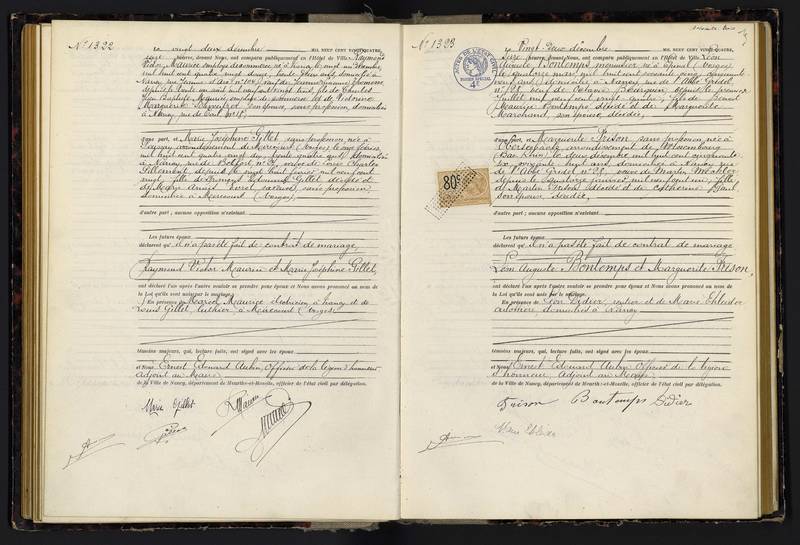 N° 1322
Le vingt deux décembre MIL NEUF CENT VINGT-QUATRE,
seize heures, devant Nous, ont comparu publiquement en l'Hôtel de Ville : Raymond
Victor
mil huit cent quatre vingt douze, trente deux ans, domicilié à
Nancy, rue Jeanne d'Arc n° 104, veuf de Jeanne
depuis le trente un août mil neuf cent vingt trois, fils de Charles
Jean Baptiste Maurice, employé de commerce et de Victorine
Marguerite son épouse, sans profession, domiciliés
à Nancy, rue de
d'une part, et Marie Joséphine Gillet, sans profession, née à
arrondissement de Mirecourt (Vosges) le
mil huit cent quatre vingt dix, trente quatre ans, domiciliée
à Nancy, rue de Belfort n° 7, veuve de Louis Charles
depuis le vingt huit février mil neuf cent
vingt, fille de Edmond Gillet décédé et
de Marie sans profession,
domiciliée à Mirecourt (Vosges),
d'autre part ; aucune opposition n'existant.
Les futurs époux
déclarent qu'il n'a pas été fait de contrat de mariage.
Raymond Victor et Marie Joséphine Gillet,
ont déclaré l'un après l'autre vouloir se prendre pour époux et Nous avons prononcé au nom de
la Loi qu'ils sont unis par le mariage.
En présence de Marcel Maurice électricien, à Nancy et de
Louis Gillet, luthier, à Mirecourt (Vosges)
témoins majeurs, qui, lecture faite, ont signé avec les époux
et Nous, Ernest Edouard Aubin, Officier de la légion d'honneur
Adjoint au Maire
de la Ville de Nancy, département de Meurthe-et-Moselle, officier de l'état civil par délégation.
Marie Gillet
N° 1323
ACTES DE L'ETAT CIVIL
PAPIER SPECIAL
4F
80c
Le Vingt-deux décembre MIL NEUF CENT VINGT-QUATRE,
seize heures, devant Nous, ont comparu publiquement en l'Hôtel de Ville : Léon
Auguste Bontemps, menuisier né à Epinal (Vosges)
le quatorze mars mil huit cent soixante cinq, cinquante
neuf ans, domicilié à Nancy rue de l'Abbé Gridel
n° 28, veuf de Octavie Bourguin depuis le premier
juillet mil neuf cent vingt quatre, fils de
Bontemps décédé et de Marguerite
Marchand, son épouse, décédée,
d'une part, et Marguerite Frison, sans profession née à
arrondissement de Wissembourg
(Bas Rhin) le deux décembre mil huit cent cinquante
six, soixante huit ans, domiciliée à Nancy, rue
de l'Abbé Gridel n° 28, veuve de Martin
depuis le janvier mil neuf cent un, fille
de Martin Frison décédé et de Catherine
son épouse décédée,
d'autre part ; aucune opposition n'existant.
Les futurs époux
déclarent qu'il n'a pas été fait de contrat de mariage
Léon Auguste Bontemps et Marguerite Frison,
ont déclaré l'un après l'autre vouloir se prendre pour époux et Nous avons prononcé au nom de
la Loi qu'ils sont unis par le mariage.
En présence de Léon Didier, et de Marie
domiciliés à Nancy
témoins majeurs, qui, lecture faite, ont signé avec les époux
et Nous, Ernest Edouard Aubin Officier de la légion
d'honneur, Adjoint au Maire
de la Ville de Nancy, département de Meurthe-et-Moselle, officier de l'état civil par délégation.
Frison Bontemps Didier